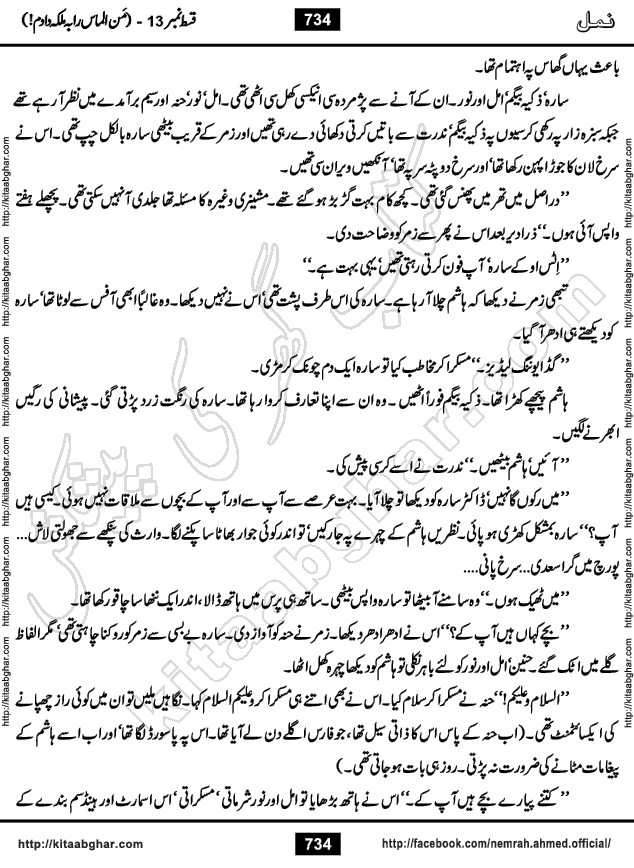 نمل 734 قسط نمبر 13 - (مَن الماس را بہ ملکہ دادم!)
باعث یہاں گھاس پہ اہتمام تھا۔
سارہ‘ ذکیہ بیگم‘ امل اور نور۔ ان کے آنے سے پژمردہ سی انیکسی کھل سی اٹھی تھی۔ امل‘ نور‘ حنہ اور سیم برآمدے میں نظر آ رہے تھے
جبکہ سبزہ زار پہ رکھی کرسیوں پہ ذکیہ بیگم‘ ندرت سے باتیں کرتی دکھائی دے رہی تھیں اور زمر کے قریب بیٹھی سارہ بالکل چپ تھی۔ اس نے
سرخ لان کا جوڑا پہن رکھا تھا‘ اور سرخ دوپٹہ سر پہ تھا‘ آنکھیں ویران سی تھیں۔
’’دراصل میں تھر میں پھنس گئی تھی۔ کچھ کام بہت گڑبڑ ہو گئے تھے۔ مشینری وغیرہ کا مسئلہ تھا جلدی آ نہیں سکتی تھی۔ پچھلے ہفتے
واپس آئی ہوں۔‘‘ ذرا دیر بعد اس نے پھر سے زمر کو وضاحت دی۔
’’اِٹس اوکے سارہ‘ آپ فون کرتی رہتی تھیں‘ یہی بہت ہے۔‘‘
تبھی زمر نے دیکھا کہ ہاشم چلا آ رہا ہے۔ سارہ کی اس طرف پشت تھی‘ اس نے نہیں دیکھا۔ وہ غالباً ابھی آفس سے لوٹا تھا‘ سارہ
کو دیکھتے ہی ادھر آ گیا۔
’’گڈ ایوننگ لیڈیز۔‘‘ مسکرا کر مخاطب کیا تو سارہ ایک دم چونک کر مڑی۔
ہاشم پیچھے کھڑا تھا۔ ذکیہ بیگم فوراً اٹھیں۔ وہ ان سے اپنا تعارف کروا رہا تھا۔ سارہ کی رنگت زرد پڑتی گئی۔ پیشانی کی رگیں
ابھرنے لگیں۔
’’آئیں‘ ہاشم بیٹھیں۔‘‘ ندرت نے اسے کرسی پیش کی۔
’’میں رکوں گا نہیں‘ ڈاکٹر سارہ کو دیکھا تو چلا آیا۔ بہت عرصے سے آپ سے اور آپ کے بچوں سے ملاقات نہیں ہوئی۔ کیسی ہیں
آپ؟‘‘ سارہ بمشکل کھڑی ہو پائی۔ نظریں ہاشم کے چہرے پہ جا رکیں‘ تو اندر کوئی جوار بھاٹا سا پکنے لگا۔ وارث کی پنکھے سے جھولتی لاش...
پورچ میں گرا سعدی.... سرخ پانی....
’’میں ٹھیک ہوں۔‘‘ وہ سامنے آ بیٹھا تو سارہ واپس بیٹھی۔ ساتھ ہی پرس میں ہاتھ ڈالا‘ اندر ایک ننھا سا چاقو رکھا تھا۔
’’بچے کہاں ہیں آپ کے؟‘‘ اس نے ادھر ادھر دیکھا۔ زمر نے حنہ کو آواز دی۔ سارہ بے بسی سے زمر کو روکنا چاہتی تھی‘ مگر الفاظ
گلے میں اٹک گئے۔ حنین‘ امل اور نور کو لئے باہر نکلی تو ہاشم کو دیکھا چہرہ کھل اٹھا۔
’’السلام وعلیکم!‘‘ حنہ نے مسکرا کر سلام کیا۔ اس نے بھی اتنے ہی مسکرا کر وعلیکم السلام کہا۔ نگاہیں ملیں تو ان میں کوئی راز چھپانے
کی ایکسائٹمنٹ تھی۔ (اب حنہ کے پاس اس کا ذاتی سیل تھا‘ جو فارس اگلے دن لے آیا تھا۔ اس پہ پاسورڈ لگا تھا‘ اور اب اسے ہاشم کے
پیغامات مٹانے کی ضرورت نہ پڑتی۔ روز ہی بات ہو جاتی تھی۔)
’’کتنے پیارے بچے ہیں آپ کے۔‘‘ اس نے ہاتھ بڑھایا تو امل اور نور شرماتی‘ مسکراتی‘ اس اسمارٹ اور ہینڈسم بندے کے
http://kitaabghar.com 734 http://facebook.com/nemrah.ahmed.official/
http://kitaabghar.com http://kitaabghar.com http://kitaabghar.com http://kitaabghar.com http://kitaabghar.com http://kitaabghar.com
http://kitaabghar.com http://kitaabghar.com http://kitaabghar.com http://kitaabghar.com http://kitaabghar.com http://kitaabghar.com
کتاب گھر کی پیشکش
kitaabghar.com